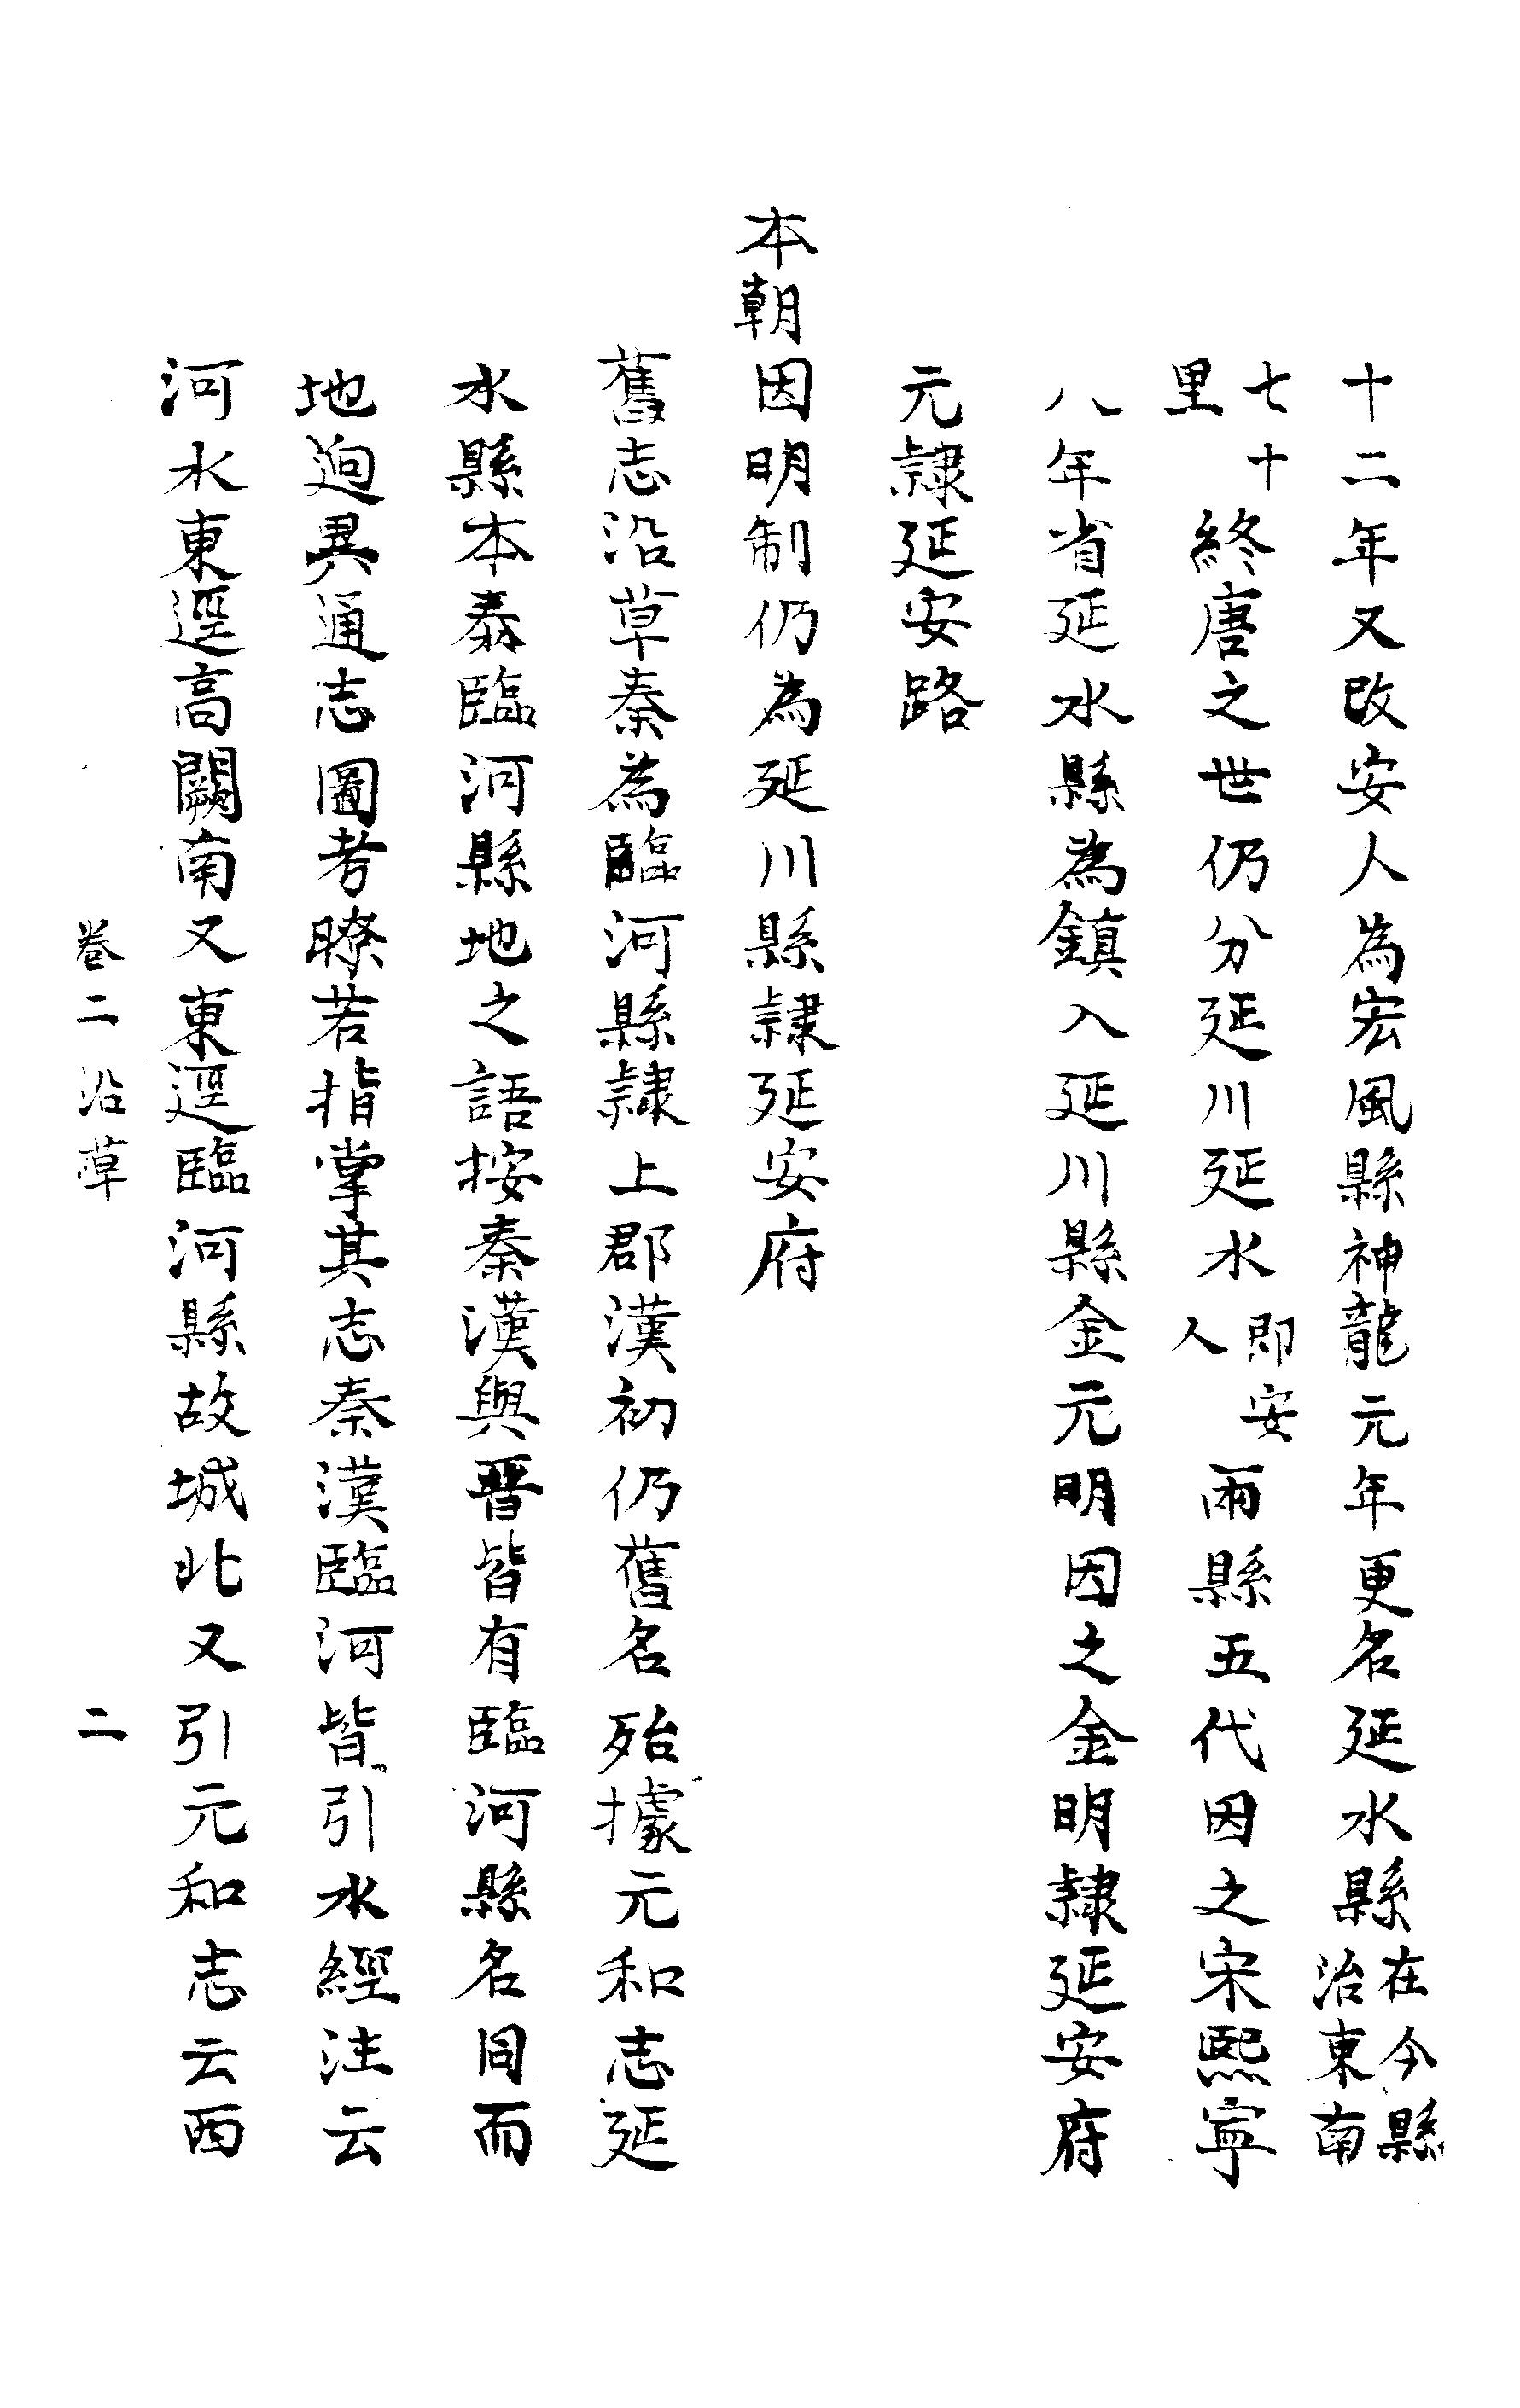 十二年又改安人為宏風縣神龍元年更名延水縣在今縣治東南
七十里終唐之世仍分延川延水即安人兩縣五代因之宋熙寧
八年省延水縣為鎮入延川縣金元明因之金明隸延安府
元隸延安路
本朝因明制仍為延川縣隸延安府
舊志沿草秦為臨河縣隸上郡漢初仍舊名殆據元和志延
水縣本秦臨河縣地之語按秦漢與晉皆有臨河縣名同而
地逈異通志圖考瞭若指掌其志秦漢臨河皆引水經注云
河水東逕高闕南又東逕臨河縣故城北又引元和志云西
卷二沿草 二